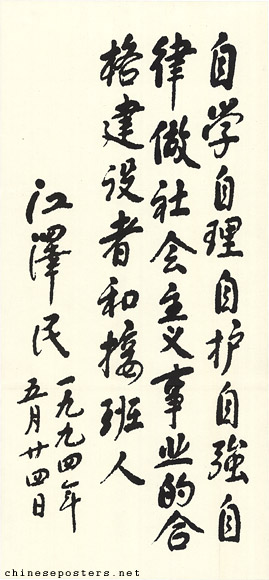 自学自理自护自強自
律做社会主义事业的合
格建设者和接班人
江澤民
一九九四年
五月廿四日
chineseposters.net